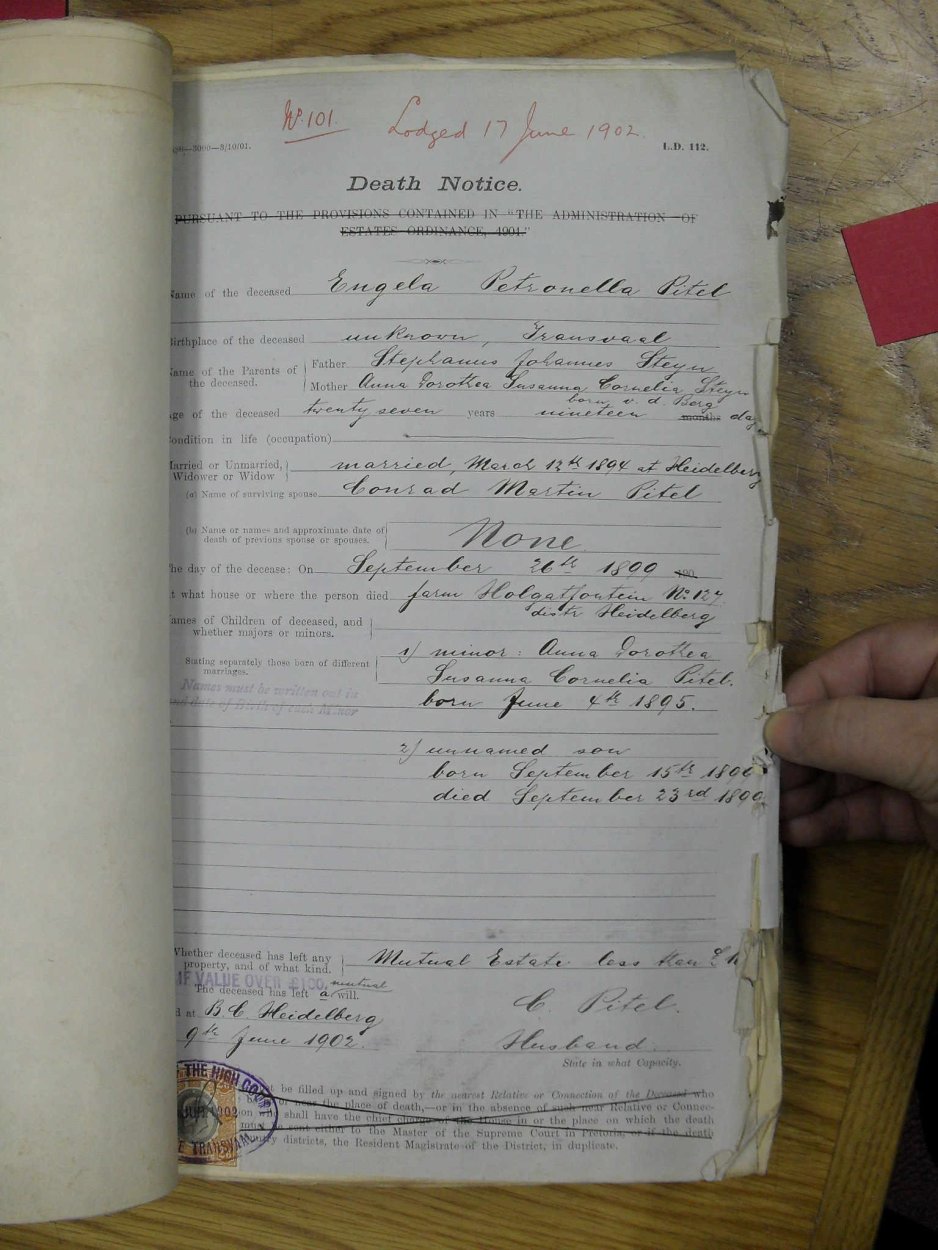 No. 101. Lodged 17 June 1902.
—3000—8/10/01. L.D. 112.
Death Notice.
PURSUANT TO THE PROVISIONS CONTAINED IN "THE ADMINISTRATION OF
ESTATES ORDINANCE, 1901."
Name of the deceased Engela Petronella Pitel
Birthplace of the deceased unknown, Transvaal
Name of the Parents of the deceased. Father Stephanus Johannes Steyn
Mother Anna Dorothea Susanna Cornelia Steyn
born v. d. Berg
Age of the deceased twenty seven years nineteen months day
Condition in life (occupation)
Married or Unmarried, Widower or Widow married, March 12th 1894 at Heidelberg
(a) Name of surviving spouse Conrad Martin Pitel
(b) Name or names and approximate date of death of previous spouse or spouses. None
The day of the decease: On September 26th 1899 190
At what house or where the person died farm Holgatfontein No 127
distr Heidelberg
Names of Children of deceased, and
whether majors or minors.
Stating separately those born of different marriages. 1) minor: Anna Dorothea
Susanna Cornelia Pitel.
Names must be written out in
and date of Birth of each Minor
born June 4th 1895.
2) unnamed son
born September 15th 1899
died September 23rd 1899
Whether deceased has left any property, and of what kind. Mutual Estate less than £
IF VALUE OVER £100,
The deceased has left a mutual will.
C. Pitel.
d at B C Heidelberg
9th June 1902. Husband.
State in what Capacity.
THE HIGH COU
1902
E TRANSVAAL
t be filled up and signed by the nearest Relative or Connection of the Deceased who
at or near the place of death,—or in the absence of such near Relative or Connec-
ion who shall have the chief charge of the House in or the place on which the death
must be sent either to the Master of the Supreme Court in Pretoria, or if the death
districts, the Resident Magistrate of the District, in duplicate.